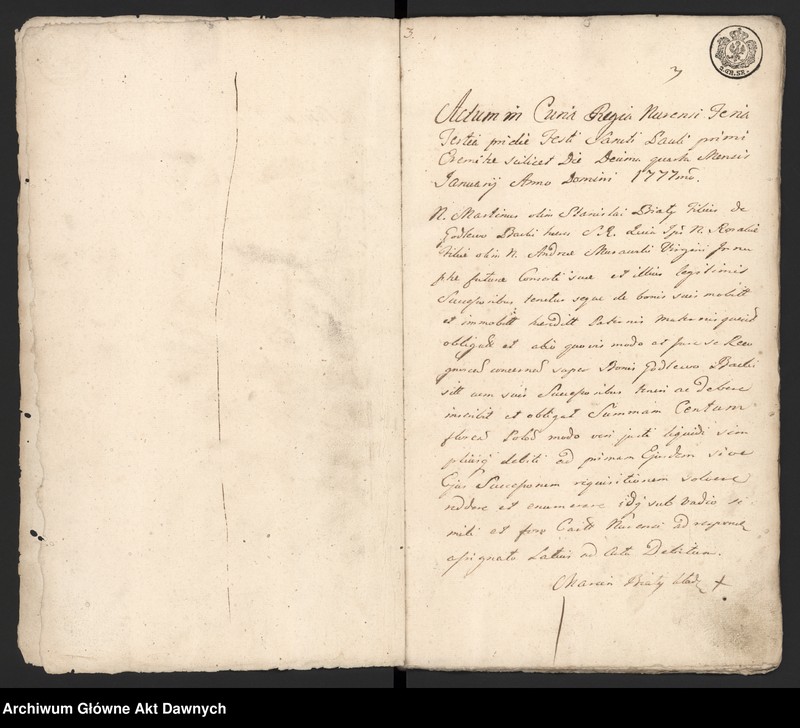 3.
3
2.GR.SR.
Actum in Curia Regia Nurensi Feria
Tertia pridie Festi Sancti Pauli primi
Eremitæ scilicet Die Decima quarta Mensis
Januarij Anno Domini 1777mo.
N. Martinus olim Stanislai Biały Filius de
Godlewo Backi hæres S.R. Quia Ipse N. Rosaliæ
Filiæ olim N. Andreæ Virgini
futuræ Consorti suæ et illius legitimis
Successoribus tenetur seque de bonis suis mobilibus
et immobilibus hæreditt Paternis maternis
obligatt et alio quovis modo et jure se
concernen super Bonis Godlewo Backi
sitt cum suis Successoribus teneri ac debere
inscribit et obligat Summam Centum
floren Polon modo veri justi liquidi sim
plicisq debiti ad primam Ejusdem sive
Ejus Successorum requisitionem solvere
reddere et enumerare idq sub Vadio si
mili et foro Castri Nurensi ad
assignato Latius ad Acta Debitum.
Marcin Biały +
Archiwum Główne Akt Dawnych